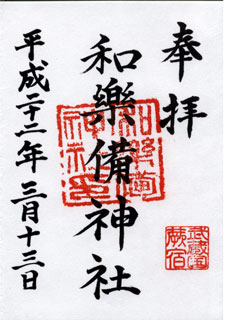 奉拝
和樂備神社
平成二十二年三月十三日
武蔵国
蕨宿